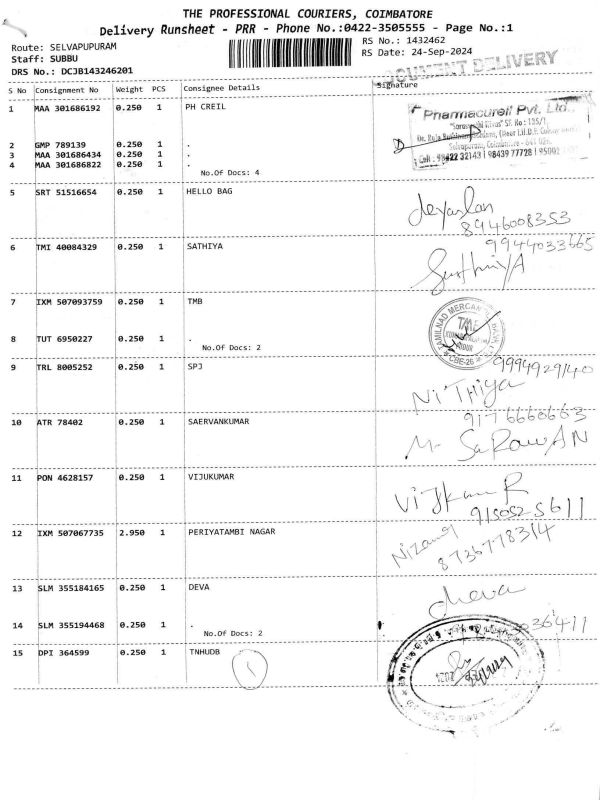 THE PROFESSIONAL COURIERS, COIMBATORE
Delivery Runsheet - PRR - Phone No.:0422-3505555 - Page No.:1
Route: SELVAPUPURAM
RS No.: 1432462
Staff: SUBBU
RS Date: 24-Sep-2024
DRS No.: DCJB143246201
DOCUMENT DELIVERY
S No Consignment No Weight PCS Consignee Details Signature
1 MAA 301686192 0.250 1 PH CREIL
Pharmacureil Pvt. Ltd.,
2 GMP 789139 0.250 1 .
3 MAA 301686434 0.250 1 .
4 MAA 301686822 0.250 1 .
Selvapuram, Coimbatore - 641 026.
No.Of Docs: 4
5 SRT 51516654 0.250 1 HELLO BAG
8946008353
6 TMI 40084329 0.250 1 SATHIYA
9944033665
7 IXM 507093759 0.250 1 TMB
TMB
8 TUT 6950227 0.250 1 .
No.Of Docs: 2
CBE-26
9 TRL 8005252 0.250 1 SPJ
9994929140
NiTHiya
10 ATR 78402 0.250 1 SAERVANKUMAR
9176660663
SaRawAN
11 PON 4628157 0.250 1 VIJUKUMAR
12 IXM 507067735 2.950 1 PERIYATAMBI NAGAR
8736778314
13 SLM 355184165 0.250 1 DEVA
Deva
14 SLM 355194468 0.250 1 .
No.Of Docs: 2
15 DPI 364599 0.250 1 TNHUDB